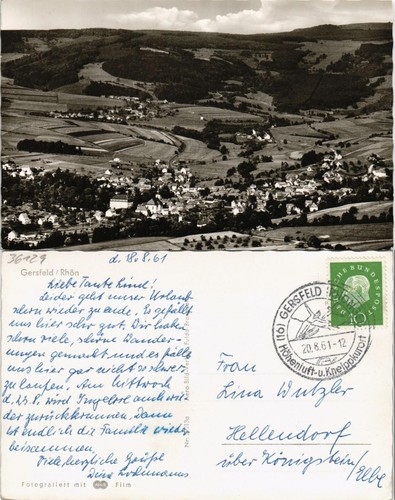 36129
d. 18.8.61
Gersfeld / Rhön
Liebe Tante Lina!
Leider geht unser Urlaub
schon wieder zu ende. Es gefällt
uns hier sehr gut. Wir haben
schon viele, schöne Wander-
ungen gemacht und es fällt
uns hier gar nicht so schwer
zu laufen. Am Mittwoch
wird Ingelore auch wie-
der zurückkommen. Dann
ist endlich die Familie wieder
beisammen.
Viele, herzliche Grüße
Fotografiert mit Film
GERSFELD
(16)
20.8.61-12
Höhenluft-u. Kneippkurort
DEUTSCHE BUNDESPOST
10
Frau
Lina Wutzler
Hellendorf
über Königstein/
Elbe